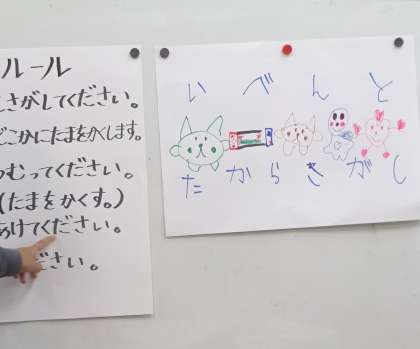 ルール
さがしてください。
どこかにたまをかくします。
つむってください。
(たまをかくす。)
あけてください。
ださい。
いべんと
たからさがし